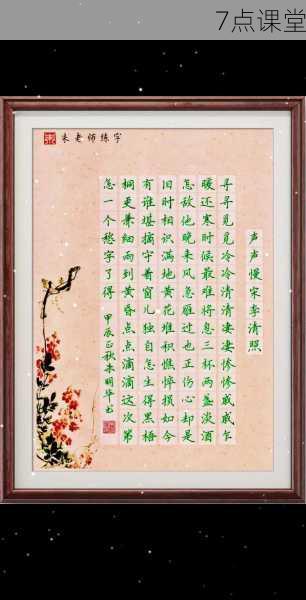 7点课堂
朱老师练字
声声慢宋李清照
寻寻觅觅冷冷清清凄凄惨惨戚戚乍
暖还寒时候最难将息三杯两盏淡酒
怎敌他晚来风急雁过也正伤心却是
旧时相识满地黄花堆积憔悴损如今
有谁堪摘守着窗儿独自怎生得黑梧
桐更兼细雨到黄昏点点滴滴这次第
怎一个愁字了得
甲辰正秋朱明华书